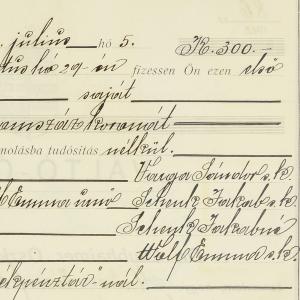 julius hó 5. K. 300.-
tus hó 29-én fizessen Ön ezen első
saját
ámszáz koronát
molásba tudósítás nélkül.
Varga Sándor s.k.
Emma ünő Schenk Jakab s.k.
Schenk Jakabné
Wolf Emma s.k.
ékpénztár"-nál.